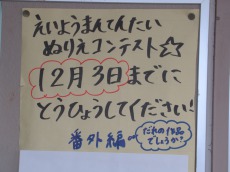 えいようまんてんたい
ぬりえコンテスト☆☆
12月3日までに
とうひょうしてください!
番外編〜
だれの作品
でしょうか?